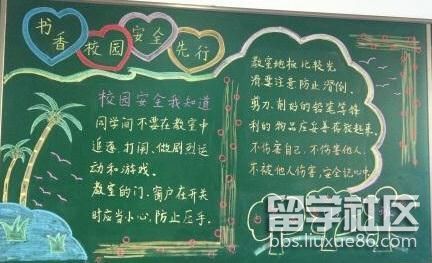 书香校园 安全先行
校园安全我知道
同学间不要在教室中
追逐、打闹、做剧烈运
动和游戏。
教室的门、窗户在开关
时应当小心,防止压手。
教室地板比较光
滑要注意防止滑倒。
剪刀、削好的铅笔等锋
利的物品应妥善存放起来,
不伤害自己,不伤害他人,
不被他人伤害,安全记心中
留学社区
bbs.liuxue86.com